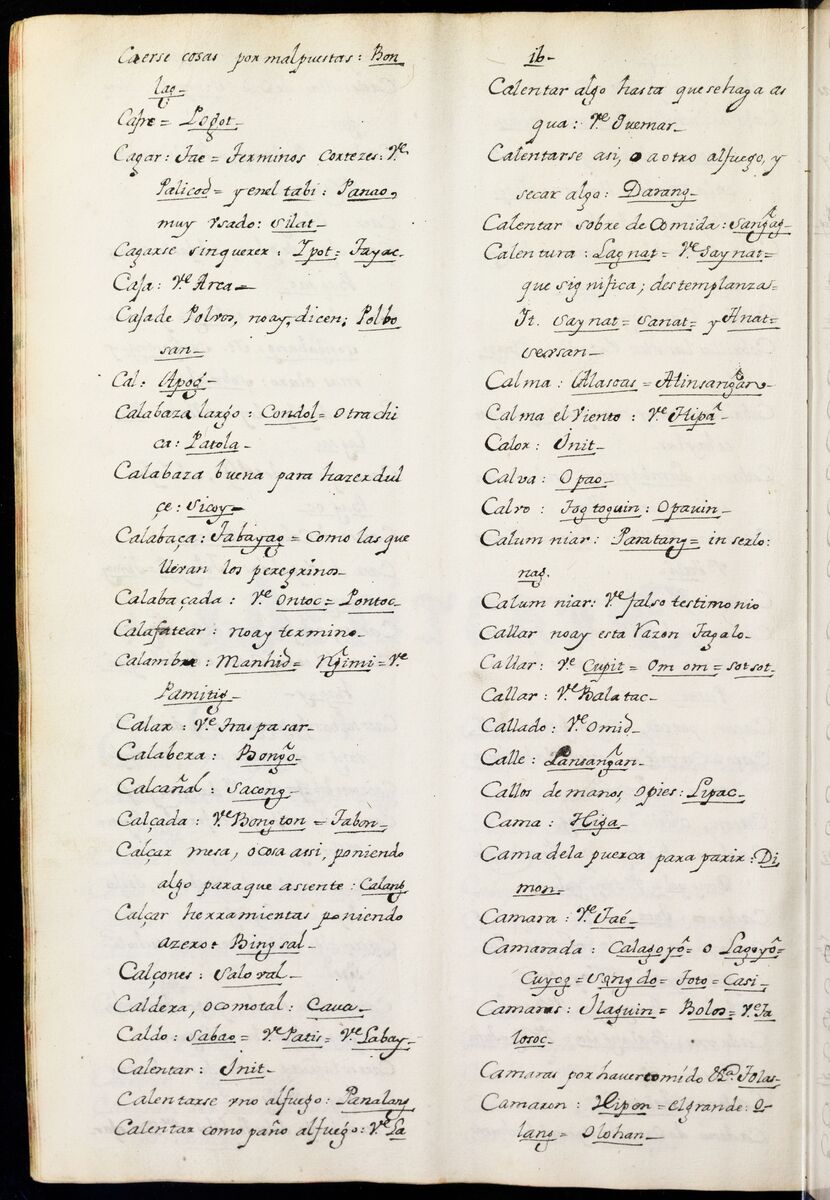 Caerse cosas por mal puestas: Bon
lag=
Cafre = Pogot-
Cagar: Tae = Terminos cortezes: Ve
Palicod = y en el tabi: Panao,
muy vsado: Silat-
Cagarse sin querer: Ypot= Tayac-
Caja: Ve Arca=
Caja de Polvos, no ay, dicen; Polbo
san-
Cal: Apog-
Calabaza largo: Condol = otra chi
ca: Patola-
Calabaza buena para hazer dul
çe: Sicoy-
Calabaça: Tabayag = Como las que
lleran los peregrinos-
Calabaçada: Ve Ontoc= Pontoc-
Calafatear: no ay termino-
Calambre: Manhid= Ngimi = Ve
Pamitig-
Calar: Ve Traspasar-
Calabera: Bongo-
Calcañal: Sacong-
Calçada: Ve Bongton = Tabon-
Calçar mesa, o cosa assi, poniendo
algo para que asiente: Calang
Calçar herramientas poniendo
azero: Bingsal-
Calçones: Saloval-
Caldera, o como tal: Cava-
Caldo: Sabao= Ve Patis= Ve Labay-
Calentar: Init-
Calentarse vno al fuego: Panalang
Calentar como paño al fuego: Ve La
ib-
Calentar algo hasta que se haga as
qua: Ve Quemar-
Calentarse asi, o a otro al fuego, y
secar algo: Darang-
Calentar sobre de Comida: Sangag-
Calentura: Lagnat= Ve Saynat=
que significa; destemplanza=
It. Saynat= Sanat= y Anat=
Calma: = Alinsangan-
Calma el Viento: Ve Hipa
Calor: Init-
Calva: Opao-
Calvo: Togtoguin: Opauin-
Calumniar: Paratang= in sexlo:
nag.
Calumniar: Ve falso testimonio
Callar no ay esta Razon Tagalo-
Callar: Ve Cupit= Om om= sot sot-
Callar: Ve Balatac-
Callado: Ve Omid-
Calle: Lansangan-
Callos de manos, o pies: Lipac-
Cama: Higa-
Cama de la puerca para parir: Di
mon-
Camara: Ve Taé-
Camarada: Calagoyo= o Lagoyo=
Cuyog= Sangdo= Toto= Casi-
Camaras: Ilaguin= Bolos= Ve Ta
losoc-
Camaras por haver comido Tolas-
Camaron: Hipon= el grande: O-
lang= Olohan-